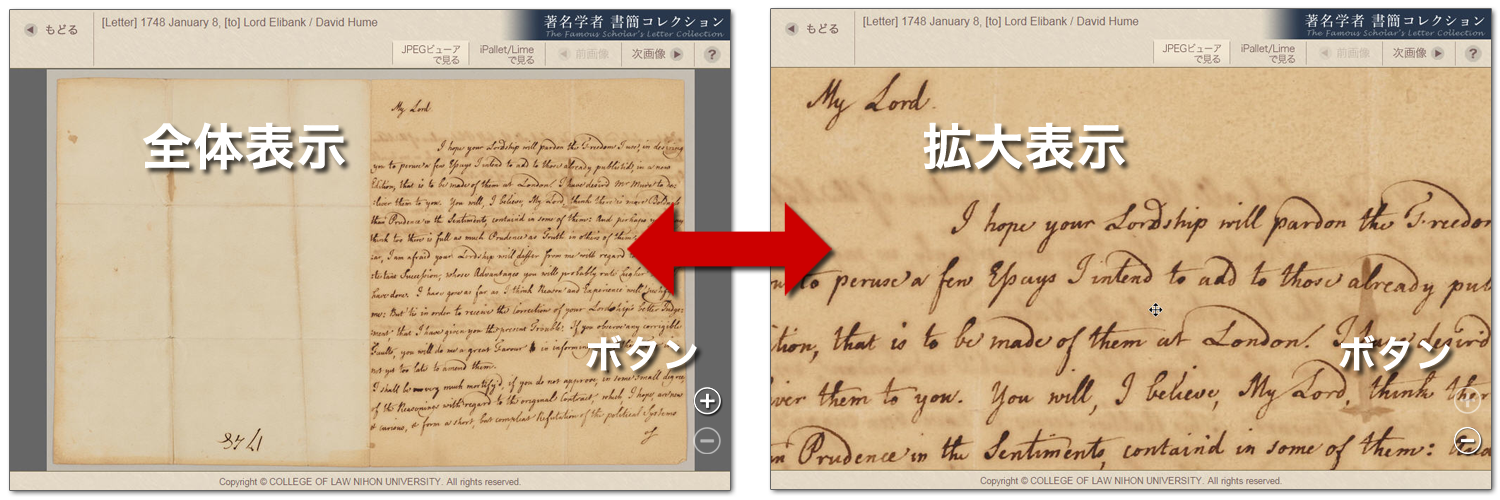 もどる
[Letter] 1748 January 8, [to] Lord Elibank / David Hume
著名学者 書簡コレクション
The Famous Scholar's Letter Collection
JPEGビューア
で見る
iPallet/Lime
で見る
前画像
次画像
?
全体表示
My Lord
I hope your Lordship will pardon the Freedom I use, in desiring
you to peruse a few Essays I intend to add to those already publish'd, in a new
Edition, that is to be made of them at London. I have desird Mr Mure to de:
:liver them to you. You will, I believe, My Lord, think there is more
than Prudence in the Sentiments, containd in some of them: And perhaps
think too there is full as much Prudence as Truth in others of them
I am afraid your Lordship will differ from me with regard
Succession, whose Advantages you will probably rate higher
have done. I have gone as far as I think Reason and Experience will
me: But 'tis in order to receive the correction of your Lordship's better Judge:
:ment that I have given you the present Trouble. If you observe any corrigible
Faults, you will do me a great Favour in informing
not yet too late to amend them.
I shall be very much mortify'd, if you do not approve, in some small degree,
of the Reasonings with regard to the original Contract, which, I hope, are new
& curious, & form a short, but compleat Refutation of the political Systems
of
1748
ボタン
Copyright © COLLEGE OF LAW NIHON UNIVERSITY. All rights reserved.
もどる
[Letter] 1748 January 8, [to] Lord Elibank / David Hume
著名学者 書簡コレクション
The Famous Scholar's Letter Collection
JPEGビューア
で見る
iPallet/Lime
で見る
前画像
次画像
?
拡大表示
My Lord.
I hope your Lordship will pardon the Freedo
to peruse a few Essays I intend to add to those already pub
tion, that is to be made of them at London. I have desird
iver them to you. You will, I believe, My Lord, think ther
n Prudence in the Sentiments, containd in some of them:
ボタン
Copyright © COLLEGE OF LAW NIHON UNIVERSITY. All rights reserved.